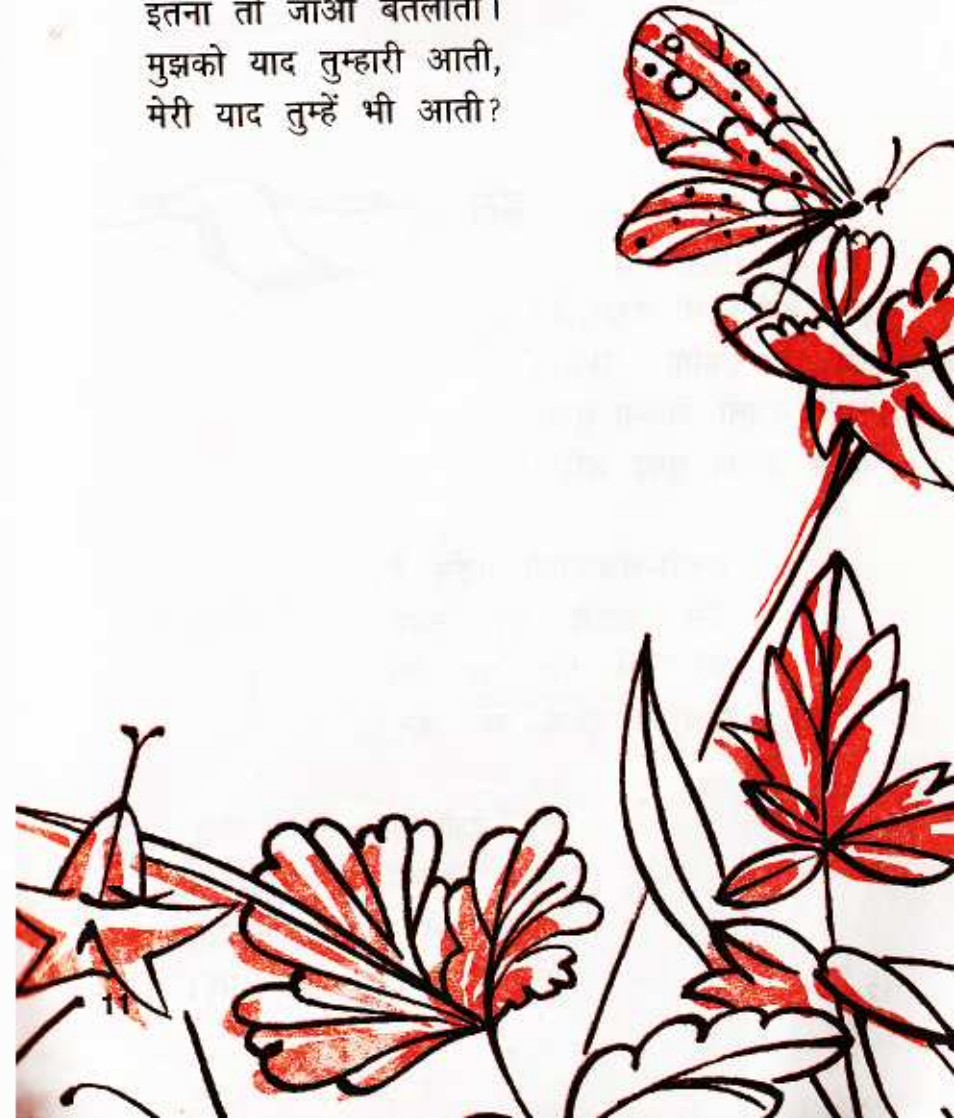 इतना तो जाओ बतलाती।
मुझको याद तुम्हारी आती,
मेरी याद तुम्हें भी आती?
11